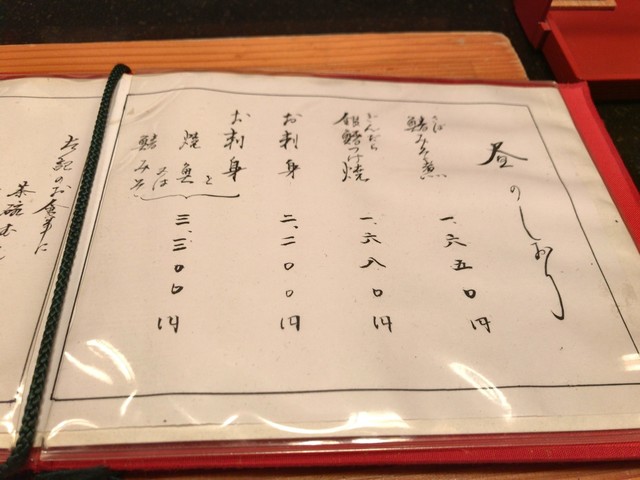 昼のしおり
さば
鯖みそ煮 一、六五〇円
ぎんだら
銀鱈つけ焼 一、六八〇円
お刺身 二、二〇〇円
お刺身と
焼魚又は
鯖みそ
三、三〇〇円
右記のお食事に
茶碗むし